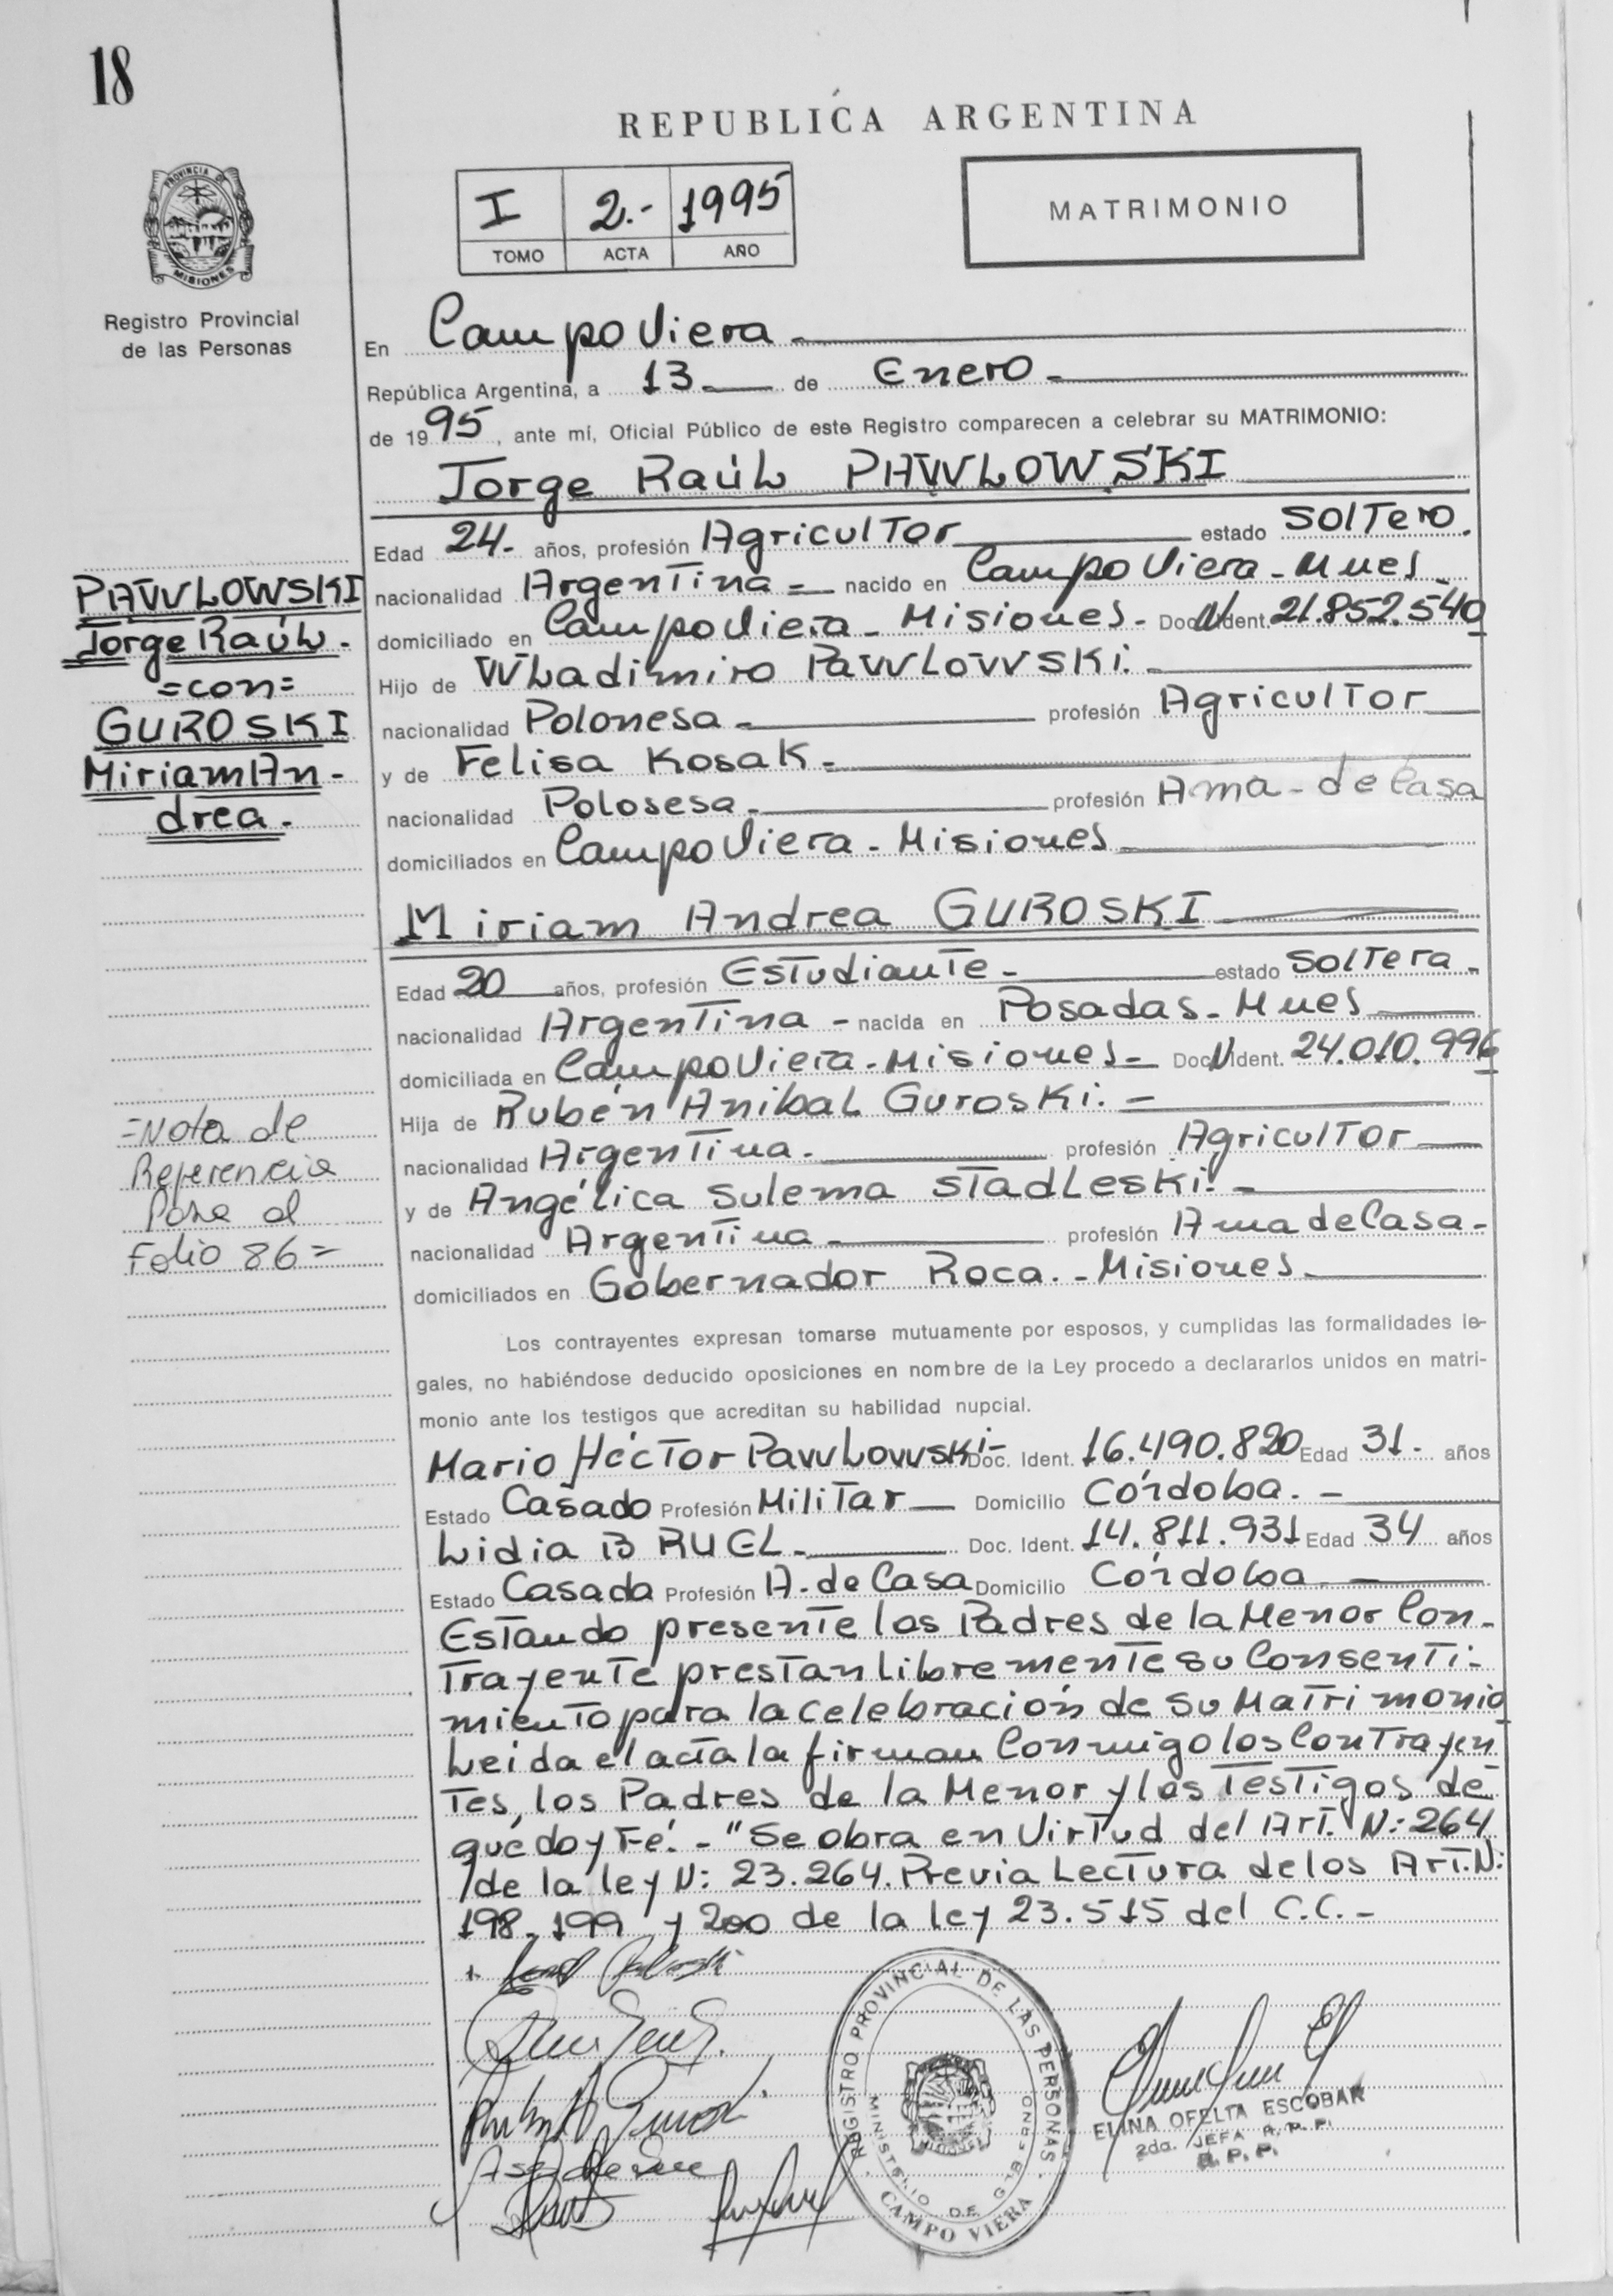 18
REPUBLICA ARGENTINA
I 2.- 1995
TOMO ACTA AÑO
MATRIMONIO
PROVINCIA DE
MISIONES
Registro Provincial
de las Personas
En Campo Viera-
República Argentina, a 13- de Enero-
de 1995, ante mí, Oficial Público de este Registro comparecen a celebrar su MATRIMONIO:
Jorge Raúl PAWLOWSKI
Edad 24- años, profesión Agricultor estado Soltero.
nacionalidad Argentina= nacido en Campo Viera-Mnes-
domiciliado en Campo Viera-Misiones- Doc. N Ident. 21.852.540
Hijo de Wladimiro Pawlowski.-
nacionalidad Polonesa- profesión Agricultor
y de Felisa Kosak-
nacionalidad Polosesa- profesión Ama-de Casa
domiciliados en Campo Viera-Misiones
PAWLOWSKI
Jorge Raúl-
=con=
GUROSKI
Miriam An-
drea-
Miriam Andrea GUROSKI
Edad 20 años, profesión Estudiante- estado Soltera-
nacionalidad Argentina- nacida en Posadas-Mnes
domiciliada en Campo Viera-Misiones- Doc. N Ident. 24.010.996
Hija de Rubén Anibal Guroski.-
nacionalidad Argentina- profesión Agricultor
y de Angélica Sulema Stadleski.-
nacionalidad Argentina- profesión Ama de Casa-
domiciliados en Gobernador Roca.-Misiones-
=Nota de
Referencia
Pase al
Folio 86=
Los contrayentes expresan tomarse mutuamente por esposos, y cumplidas las formalidades le-
gales, no habiéndose deducido oposiciones en nombre de la Ley procedo a declararlos unidos en matri-
monio ante los testigos que acreditan su habilidad nupcial.
Mario Héctor Pawlowski- Doc. Ident. 16.490.820 Edad 31- años
Estado Casado Profesión Militar Domicilio Córdoba.-
Lidia BRUEL- Doc. Ident. 14.811.931 Edad 34 años
Estado Casada Profesión A. de Casa Domicilio Córdoba
Estando presente los Padres de la Menor Con-
trayente prestan libremente su Consenti-
miento para la celebración de su Matrimonio
Leida el acta la firman Conmigo los Contrayen
tes, los Padres de la Menor y los Testigos de
qué doy Fé.-"Se obra en Virtud del Art. N: 264
de la ley N: 23.264. Previa Lectura de los Art.N:
198-199 y 200 de la ley 23.515 del C.C.-
REGISTRO PROVINCIAL DE LAS PERSONAS
MINISTERIO DE GOBIERNO
CAMPO VIERA
ELINA OFELIA ESCOBAR
2da. JEFA R.P.P.
R.P.P.